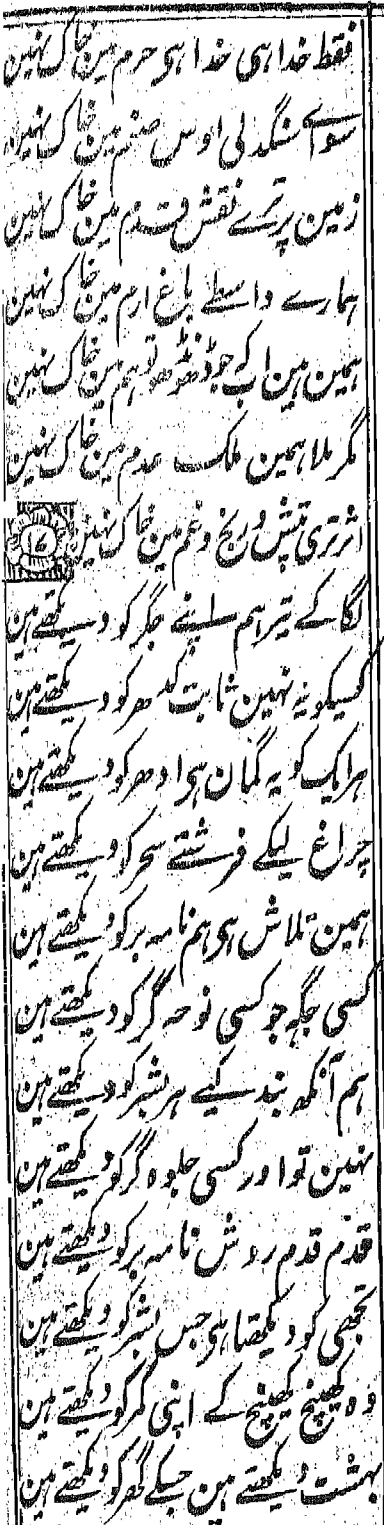 فقط خدا ہی خدا ہی حرم مین خاک نہین
سواے سنگدلی اوس صنم مین خاک نہین
زمین پر ترے نقش قدم مین خاک نہین
ہمارے واسطے باغ ارم مین خاک نہین
ہمین ہین اب کے جو ڈھونڈھو تو ہم مین خاک نہین
مگر ملا ہمین ملک عدم مین خاک نہین
اثر تری تپش و رنج و غم مین خاک نہین
۱۷
لگا کے تیر ہم اپنے جگر کو دیکھتے ہین
کسیکو یہ نہین ثابت کدھر کو دیکھتے ہین
ہر ایک کو یہ گمان ہی ادھر کو دیکھتے ہین
چراغ لیکے فرشتے سحر کو دیکھتے ہین
ہمین تلاش ہی ہم نامہ بر کو دیکھتے ہین
کسی جگہ جو کسی نوحہ گر کو دیکھتے ہین
ہم آنکھ بند کیے ہر بشر کو دیکھتے ہین
نہین تو اور کسی جلوہ گر کو دیکھتے ہین
قدم قدم روش نامہ بر کو دیکھتے ہین
تجھی کو دیکھتا ہی جس بشر کو دیکھتے ہین
وہ کھینچ کھینچ کے اپنی کمر کو دیکھتے ہین
بہشت دیکھتے ہین جسکے گھر کو دیکھتے ہین